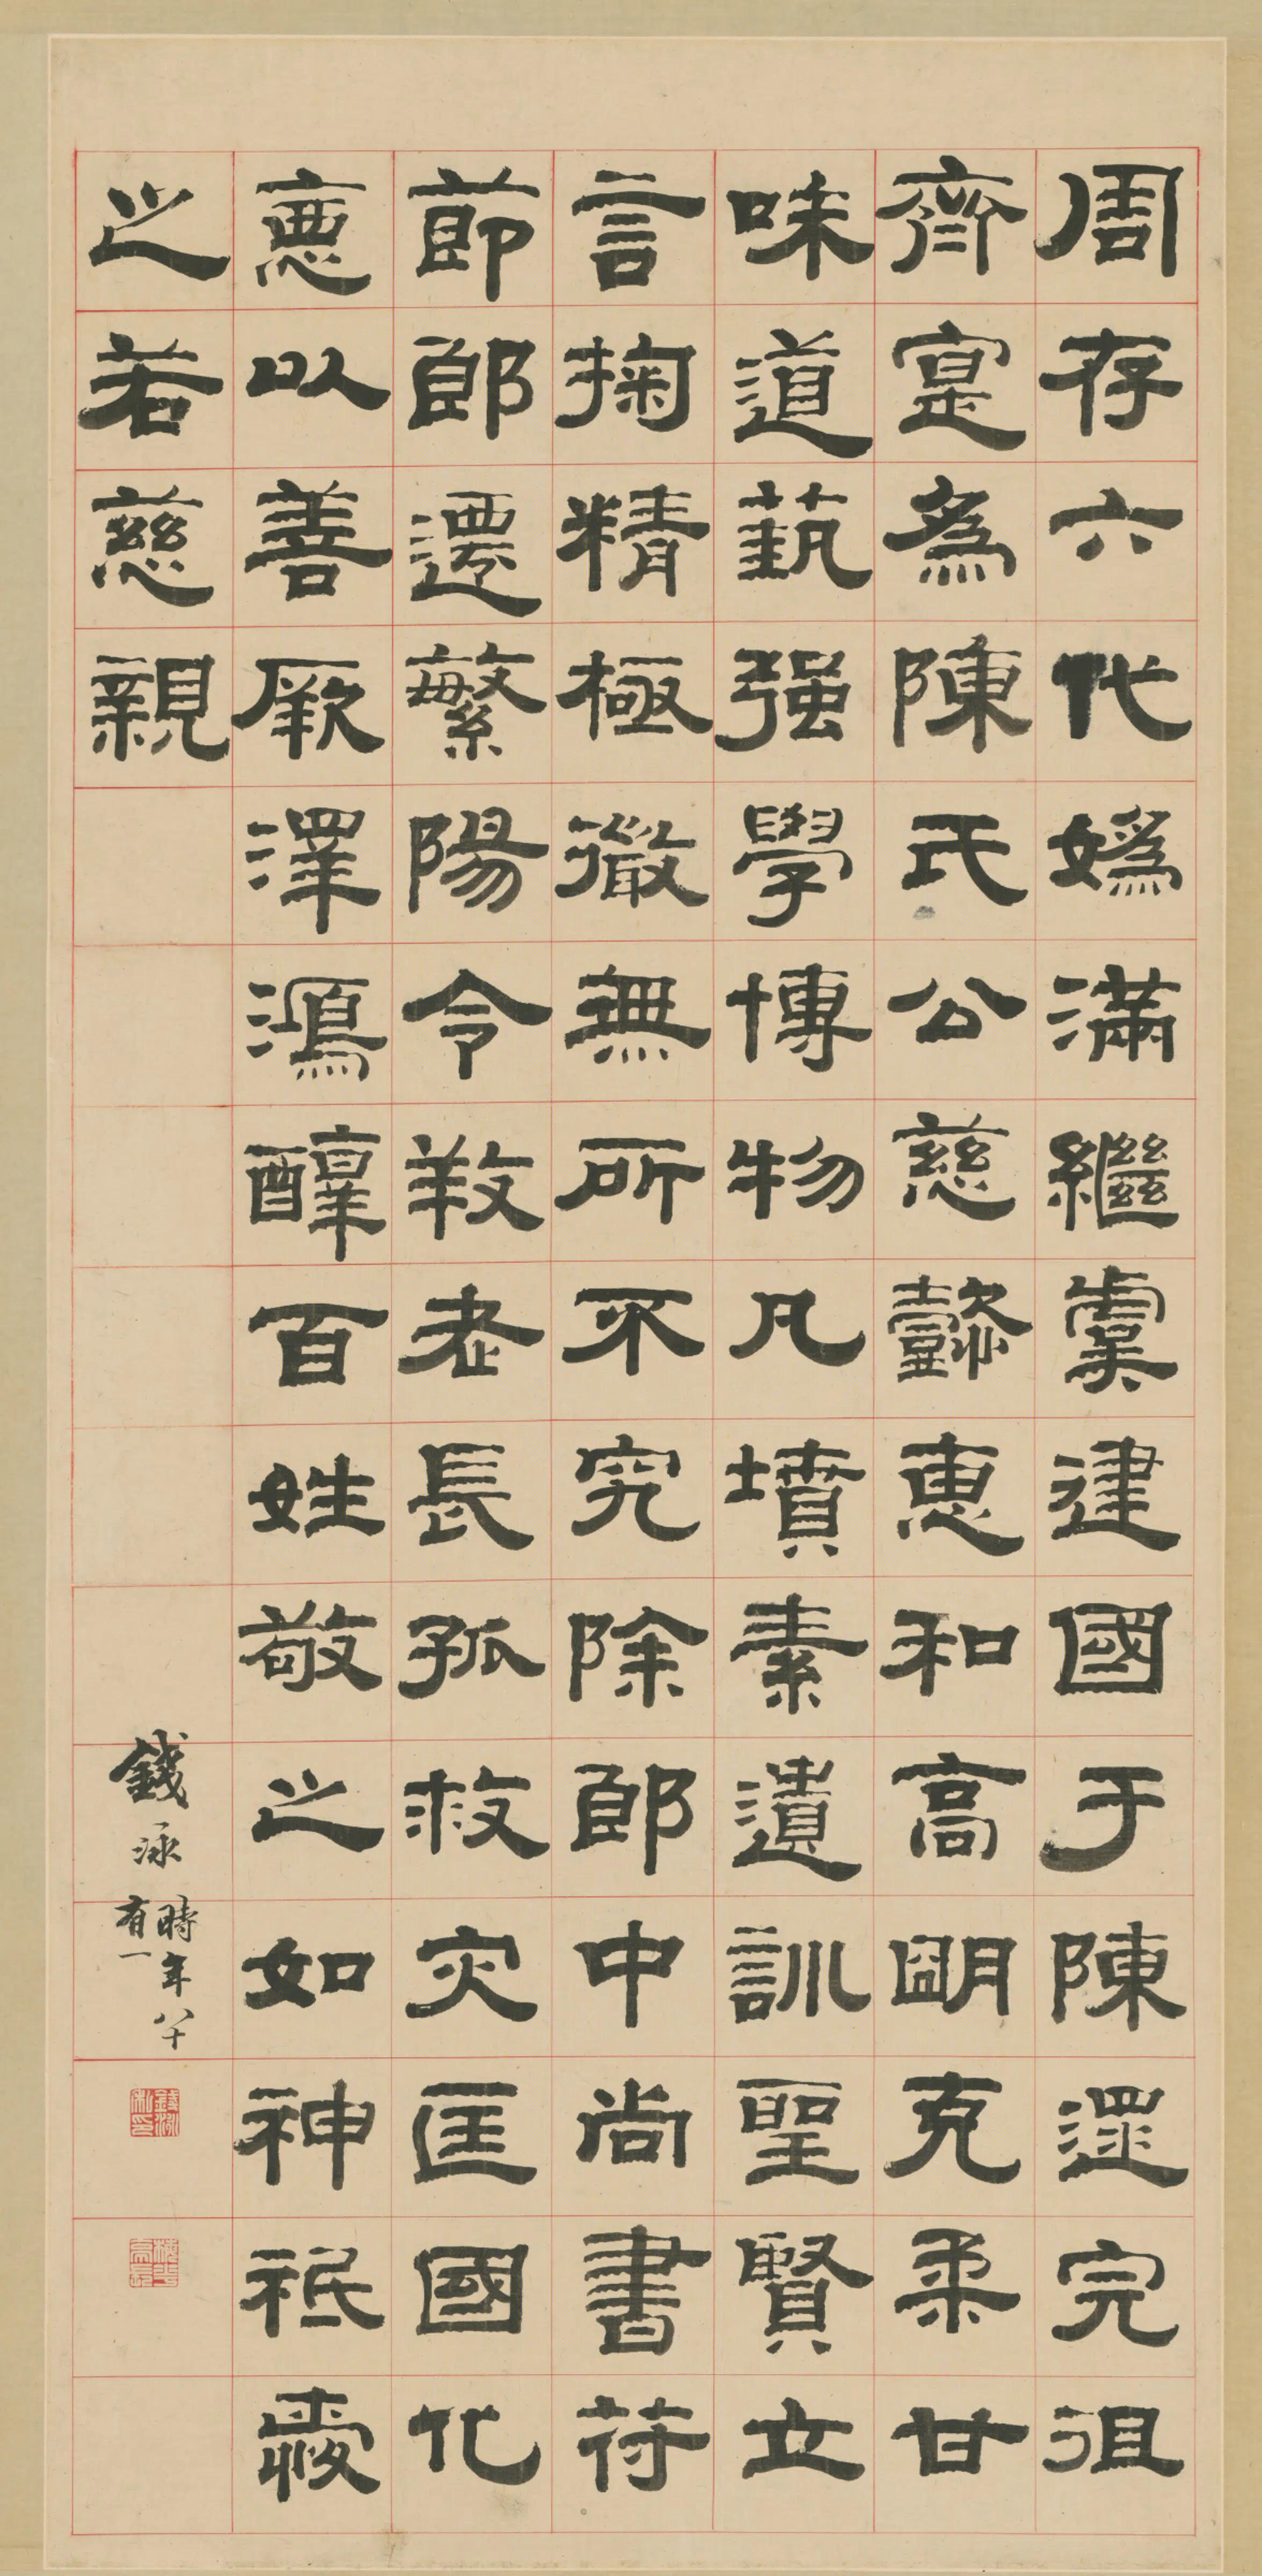 周存六代嬀滿繼虞建國于陳遝完徂
齊寔為陳氏公慈懿惠和高朙克柔甘
味道蓺强學博物凡墳素遺訓聖賢立
言掬精極徽無所不究除郎中尚書符
節郎遷繁陽令敎老長孤救灾匡國化
惪以善厥澤鴻醇百姓敬之如神祇愛
之若慈親
錢泳
時年八十
有一
錢泳私印